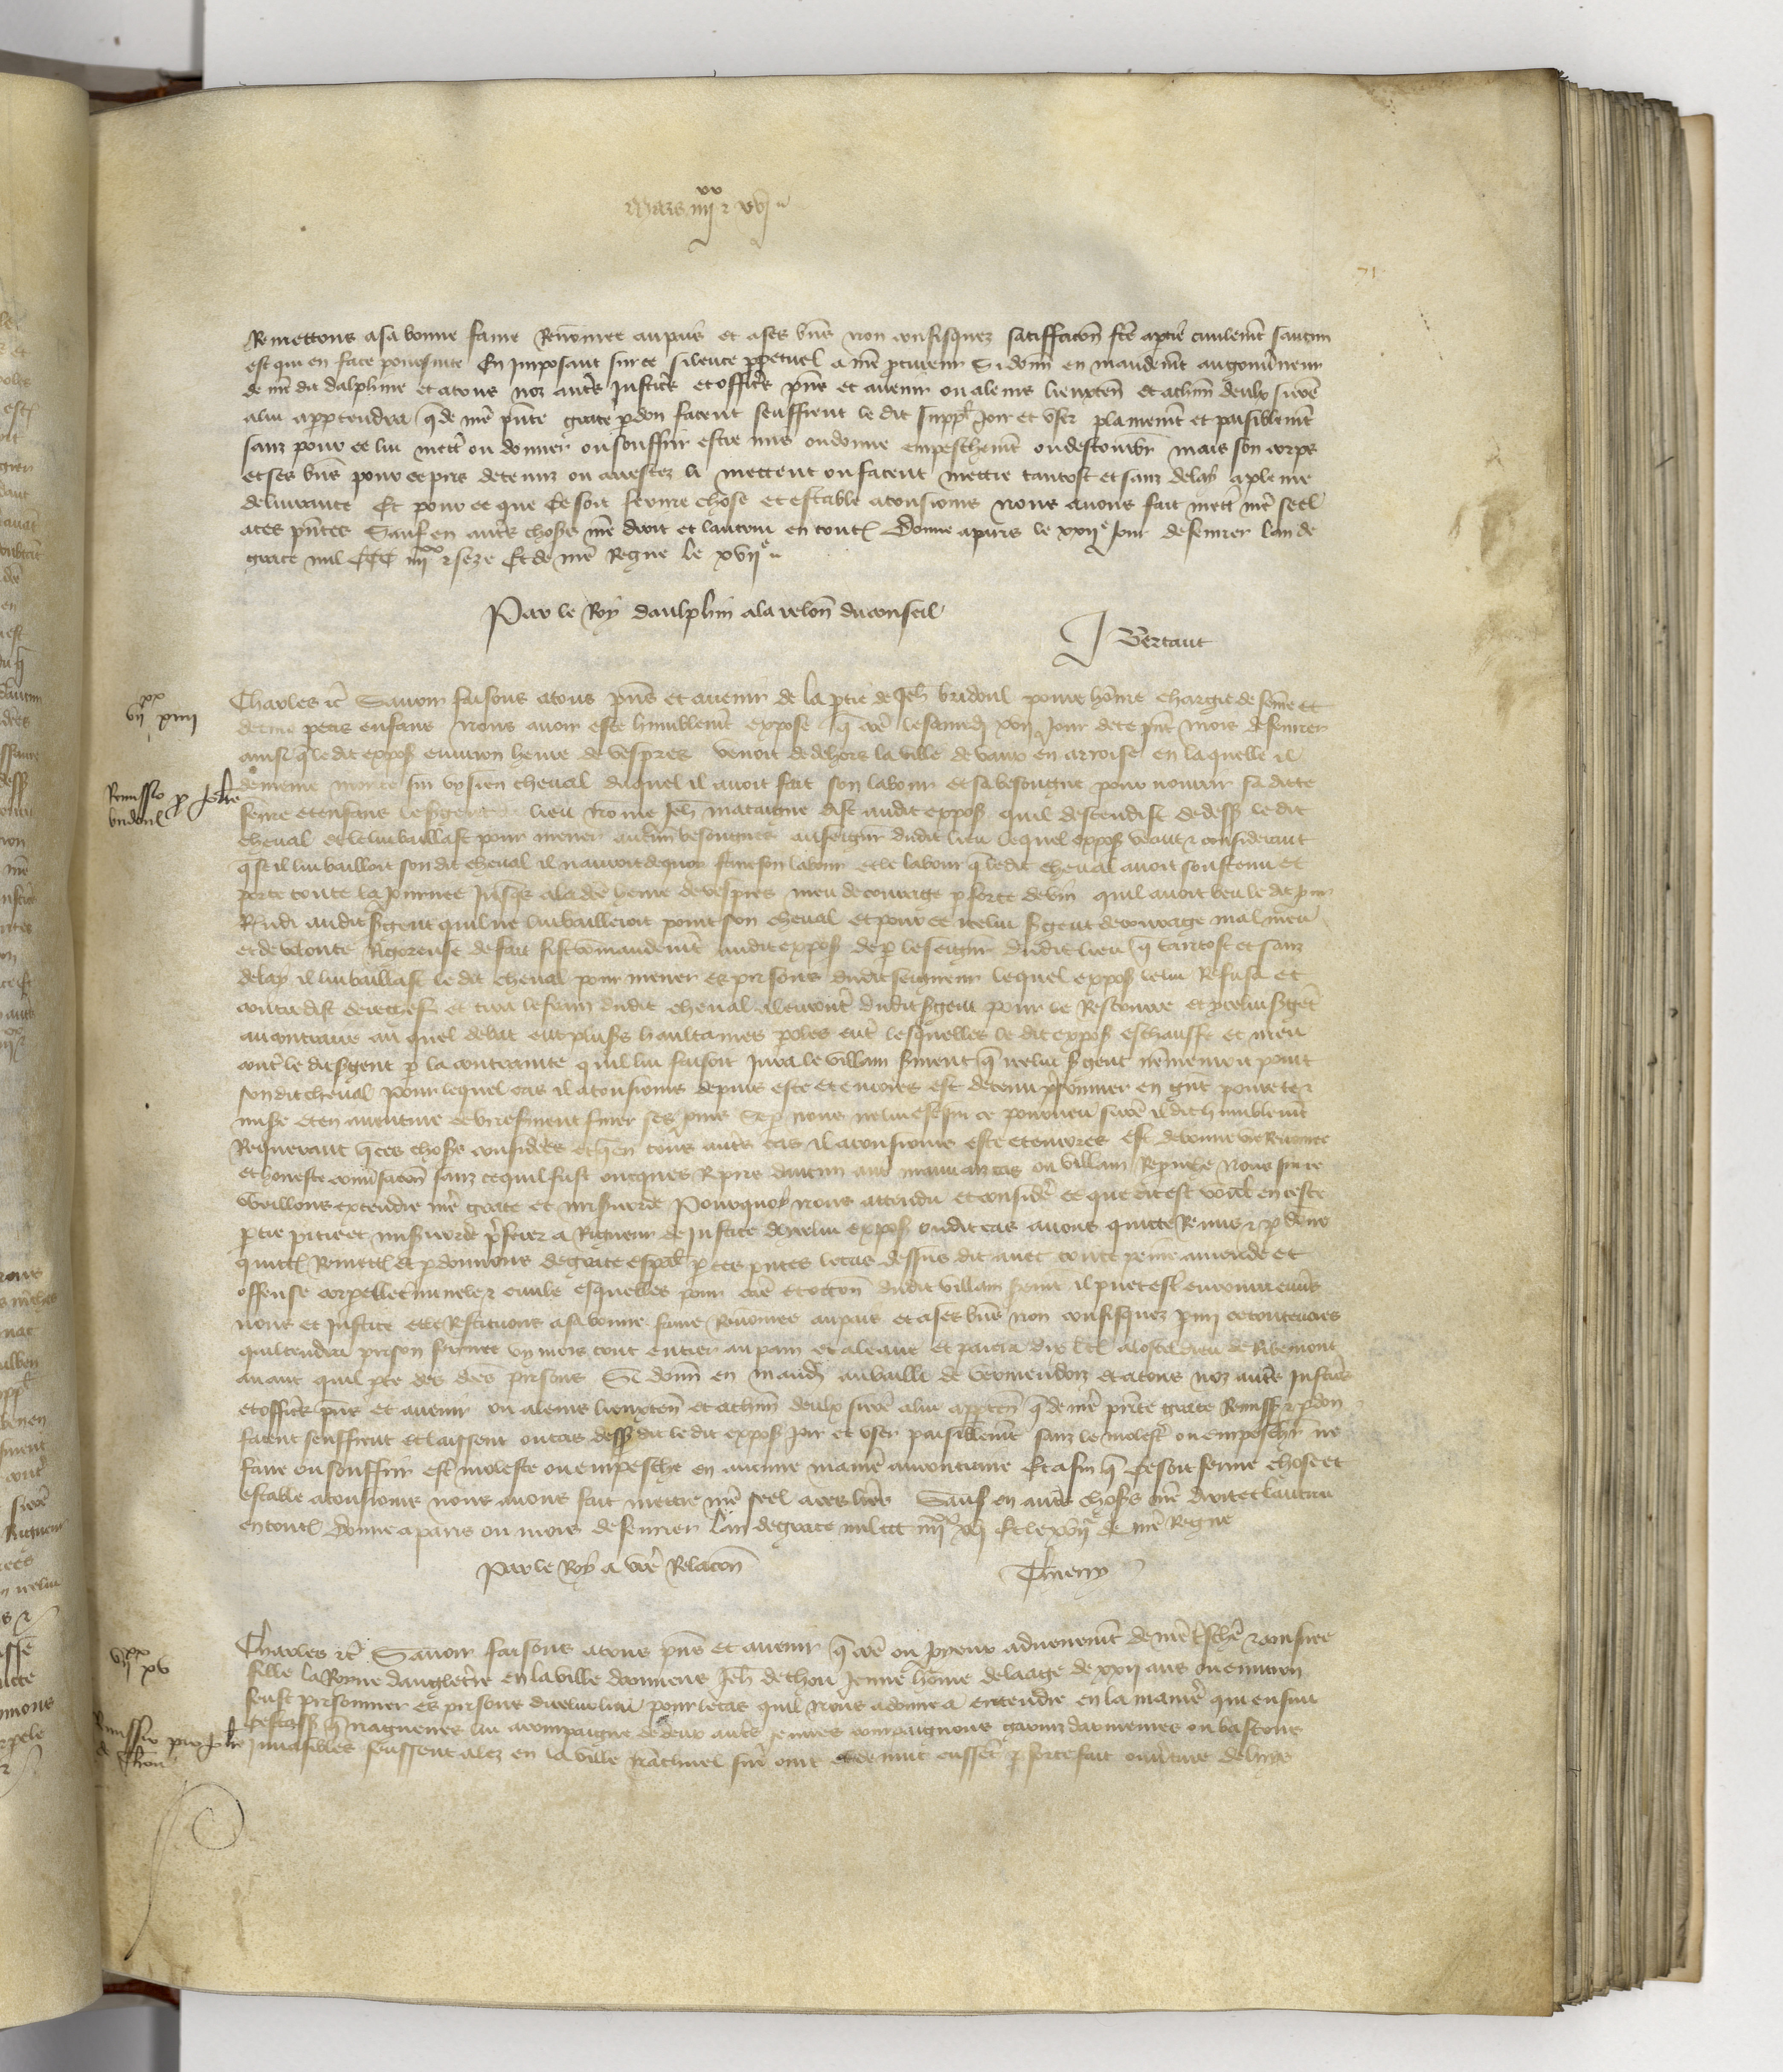 Mars iiii xx et xvi
71
Remettons a sa bonne fame Renommee au pais et a ses biens non confisquez satiffaccion fcte a partie civilement s'aucun
est qui en face poursuite En Imposant sur ce silence perpetuel a nre procureur Si donn en mandement au gouverneur
de nre dit dalphine et a tous noz autres Justiciers et officiers pns et avenir ou a leurs lieuxten et a chun deulx sicoe
a lui appartendra que de nre pnte grace pdon facent seuffrent le dit suppl Joir et user plainement et paisiblement
sanz pour ce lui mettre ou donner ou souffrir estre mis ou donne empeschement ou destourbr mais son corps
et ses biens pour ce pris detenuz ou arrestez li mettent ou facent mettre tantost et sanz delay a pleine
delivrance Et pour ce que ce soit ferme chose et estable a tousiours nous avons fait mettr nre seel
a ces pntes Sauf en autres choses nre droit et lautrui en toutes Donne a paris le xxije Jour de fevrier lan de
grace mil CCC iiii xx et seze Et de nre Regne le xvije
Par le Roy daulphin a la relon du conseil
J Bertaut
vii xx xiiii
Charles etc Savoir faisons a tous pns et avenir de la ptie de Jeh bridoul povre home chargie de feme et
de petis enfans nous avoir este humblement expose que coe le samedi xvij Jour de ce pnt mois de fevrier
ainsi que le dit expos environ heure de vespres venoit de dehors la ville de vaux en arroise en laquelle il
demeure monte sur un sien cheval duquel il avoit fait son labour et sa besongne pour nourrir sa dicte
Remissio pro Johe
bridoul
feme et enfans le sergent lieu nome Jeh mataigne dist audit expos quil descendist de dessus le dit
cheval et le lui baillast pour mener besongnes au seigneur dudit lieu lequel expos veant et considerant
que se il lui bailloit son dit cheval il n'auroit de quoy faire son labour et le labour que le dit cheval avoit soustenu et
porte toute la Journee Jusques a la dicte heure de vespres meu de courage p force de vin quil avoit beu le dit Jour
Rndi audit sergent quil ne lui bailleroit point son cheval et pour ce icelui sergent de courage mal meu
et de volonte Rigoreuse de fait fist comandement audit expos de p le seigneur dudit lieu que tantost et sanz
delay il lui baillast le dit cheval pour mener es prisons dudit seigneur lequel expos le lui Refusa et
contredist derechef et tira le frain dudit cheval alencontre dudit sergent pour le Rescourre et icelui sergent
au contraire au quel debat eut pluss haultaines paroles entre lesquelles le dit expos eschauffe et meu
contre le dit sergent p la contrainte quil lui faisoit Jura le villain serment que icelui sergent n'enmenroit point
son dit cheval Pour lequel cas il a tousiours depuis este et encores est detenu prisonnier en grant povrete et
misere et en aventure de briefment finer ses jours se p nous ne lui est sur ce pourveu sicoe il dit humblement
Requerant que ces choses considerees et que en tous autres cas il a tousiours este et encores est de bonne vie Renommee
et honeste conversacion sanz ce quil fust oncques Repris d'aucun autre mauvais cas ou villain Reprouche Nous sur ce
Vueillons extendre nre grace et misericorde Pourquoy nous attendu et considere ce que dit est voulans en ceste
ptie pitie et misericorde preferer a Rigueur de Justice a icelui expos oudit cas avons quitte Remis et pdonne
quittons Remettons et pdonnons de grace espal p ces pntes le cas dessus dit avec toute peine amende et
offense corporelle criminele et civile esquelles pour cause et occon dudit villain serment il puet estre encouru envers
nous et Justice et le Restituons a sa bonne fame Renommee au pais et a ses biens non confisquez pmi ce toutevoies
quil tendra prison fermee un mois tout entier au pain et a leaue et paiera dix a lostel dieu de Ribemont
avant quil pte des dces prisons Si donn en mand au bailli de vermendois et a tous noz autres Justiciers
et officiers pns et avenir ou a leurs lieuxten et a chun deulx sicoe a lui appten que de nre pnte grace Remiss et pdon
facent seuffrent et laissent ou cas dess dit le dit expos Joir et user paisiblement sanz le molester ou empescher ne
faire ou souffrir estre moleste ou empesche en aucune maniere au contraire Et afin que ce soit ferme chose et
estable a tousiours nous avons fait mettre nre seel a ces lres Sauf en autres choses nre droit et lautrui
en toutes Donne a paris ou mois de fevrier lan de grace mil ccc iiii xx xvj Et le xvije de nre Regne
Par le Roy a vre Relacon
Thierry
vii xx xv
Charles etc Savoir faisons a tous pns et avenir que coe ou Joyeux advenement de nre treschere et tresamee
fille la Royne dangleterre en la ville damiens Jeh de thou Jeune home de laage de xxij ans ou environ
feust prisonnier es prisons dicelui lieu pour le cas quil nous a donne a entendre en la maniere qui ensuit
Remissio pro Johe
de thou
Cestass que naguerres lui acompaigne de deux autres Jeunes compaignons garniz darmeures ou bastons
Invasibles feussent alez en la ville et de nuit eussent p force fait ouverture de luys